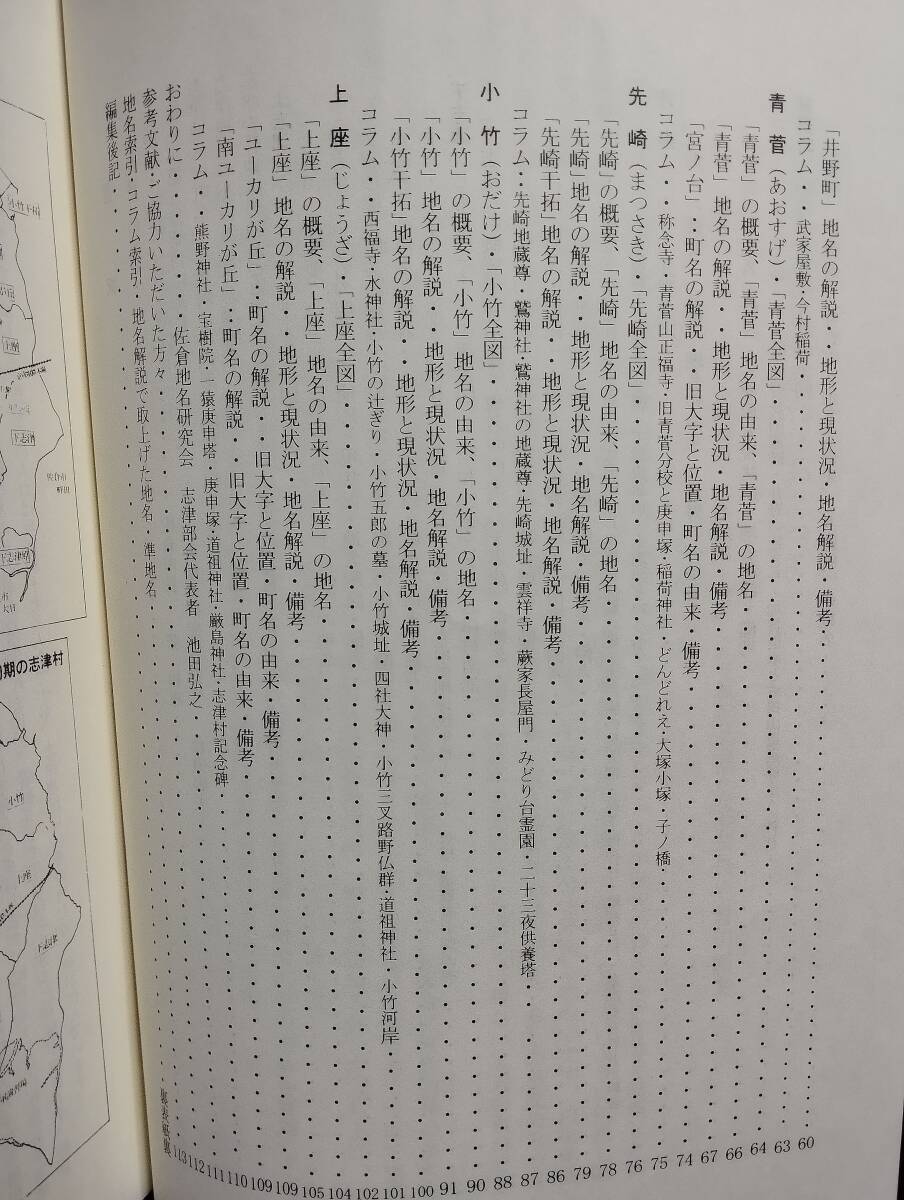 「井野町」地名の解説・・地形と現状況・地名解説・備考・・・60
コラム・・武家屋敷・今村稲荷・・・63
青菅(あおすげ)・「青菅全図」・・・64
「青菅」の概要、「青菅」地名の由来、「青菅」の地名・・・66
「青菅」地名の解説・・地形と現状況・地名解説・備考・・・67
「宮ノ台」:町名の解説・・旧大字と位置・町名の由来・備考・・・74
コラム・・称念寺・青菅山正福寺・旧青菅分校と庚申塚・稲荷神社・どんどれえ・大塚小塚・子ノ橋・・・75
先崎(まつさき)・「先崎全図」・・・76
「先崎」の概要、「先崎」地名の由来、「先崎」の地名・・・78
「先崎」地名の解説・・地形と現状況・地名解説・備考・・・79
「先崎干拓」地名の解説・・地形と現状況・地名解説・備考・・・86
コラム・:先崎地蔵尊・鷲神社・鷲神社の地蔵尊・先崎城址・雲祥寺・蕨家長屋門・みどり台霊園・二十三夜供養塔・・・87
小竹(おだけ)・「小竹全図」・・・88
「小竹」の概要、「小竹」地名の由来、「小竹」の地名・・・90
「小竹」地名の解説・・地形と現状況・地名解説・備考・・・91
「小竹干拓」地名の解説・・地形と現状況・地名解説・備考・・・100
コラム・・西福寺・水神社・小竹の辻ぎり・小竹五郎の墓・小竹城址・四社大神・小竹三叉路野仏群・道祖神社・小竹河岸・・・101
上座(じょうざ)・「上座全図」・・・102
「上座」の概要、「上座」地名の由来、「上座」の地名・・・104
「上座」地名の解説・・地形と現状況・地名解説・備考・・・105
「ユーカリが丘」:町名の解説・・旧大字と位置・町名の由来・備考・・・109
「南ユーカリが丘」:町名の解説・・旧大字と位置・町名の由来・備考・・・109
コラム・・熊野神社・宝樹院・一猿庚申塔・庚申塚・道祖神社・厳島神社・志津村記念碑・・・110
おわりに・・・佐倉地名研究会 志津部会代表者 池田弘之・・・111
参考文献・ご協力いただいた方々・・・112
地名索引・コラム索引・地名解説で取上げた地名、準地名・・・113
編集後記・・・裏表紙裏
期の志津村
小竹
上座
下志津